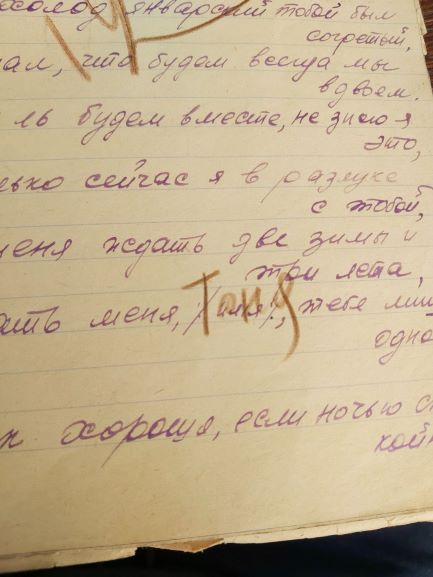 холод январский тобой был
согретый,
что будем всегда мы
вдвоем.
ль будем вместе, не знаю я
это,
сейчас я в разлуке
с тобой,
меня ждать две зимы и
три лета,
Таня
меня, /имя/, тебе
одно
хороша, если ночью